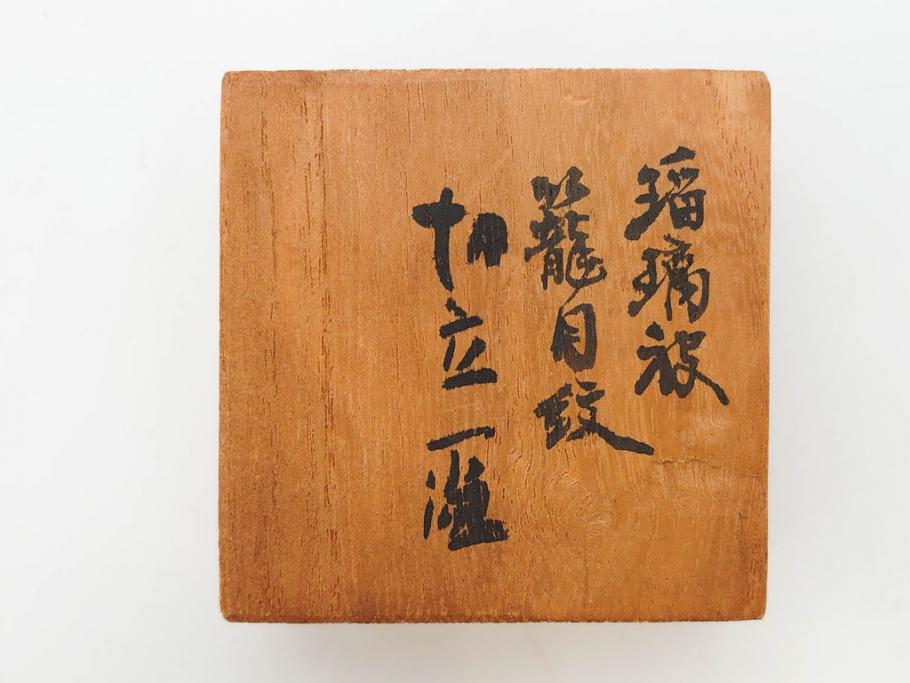 瑠璃被
籠目紋
切立一